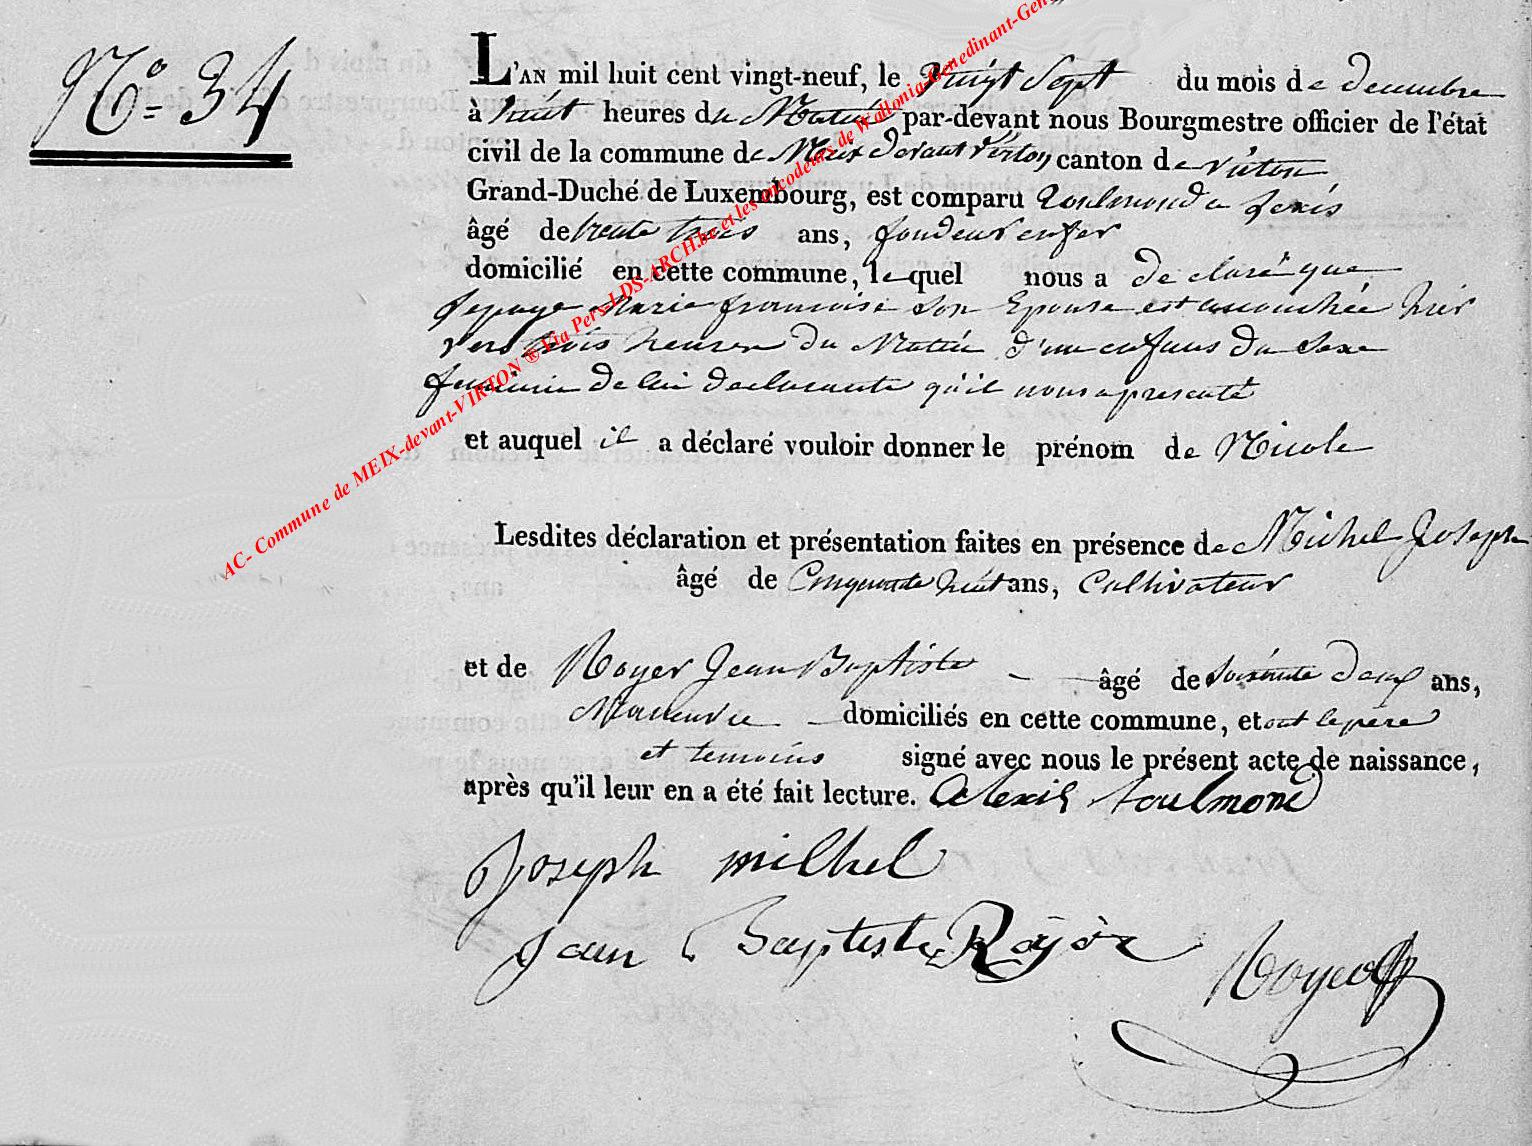 N.o 34
L'AN mil huit cent vingt-neuf, le vingt Sept du mois de decembre
à huit heures du Matin par-devant nous Bourgmestre officier de l'état
civil de la commune de Meix devant Virton canton de virton
Grand-Duché de Luxembourg, est comparu Toulmonde
âgé de trente trois ans, fondeur en fer
domicilié en cette commune, lequel nous a declaré que
Lepage Marie francoise Son Epouse est accouchée hier
vers trois heures du Matin d'un enfans du Sexe
feminin de lui declarante qu'il nous a presenté
et auquel il a déclaré vouloir donner le prénom de Nicole
Lesdites déclaration et présentation faites en présence de Michel Joseph
âgé de Cinquante huit ans, Cultivateur
et de Royer Jean Baptiste âgé de Soixante deux ans,
Manœuvre domiciliés en cette commune, et ont le père
et temoins signé avec nous le présent acte de naissance,
après qu'il leur en a été fait lecture. Alexis toulmond
Joseph milhel
Jean Baptiste Royér
Royer
AC- Commune de MEIX-devant-VIRTON ® Via Pers-LDS-ARCH.be et les encodeurs de Wallonia-Genedinant-Gen